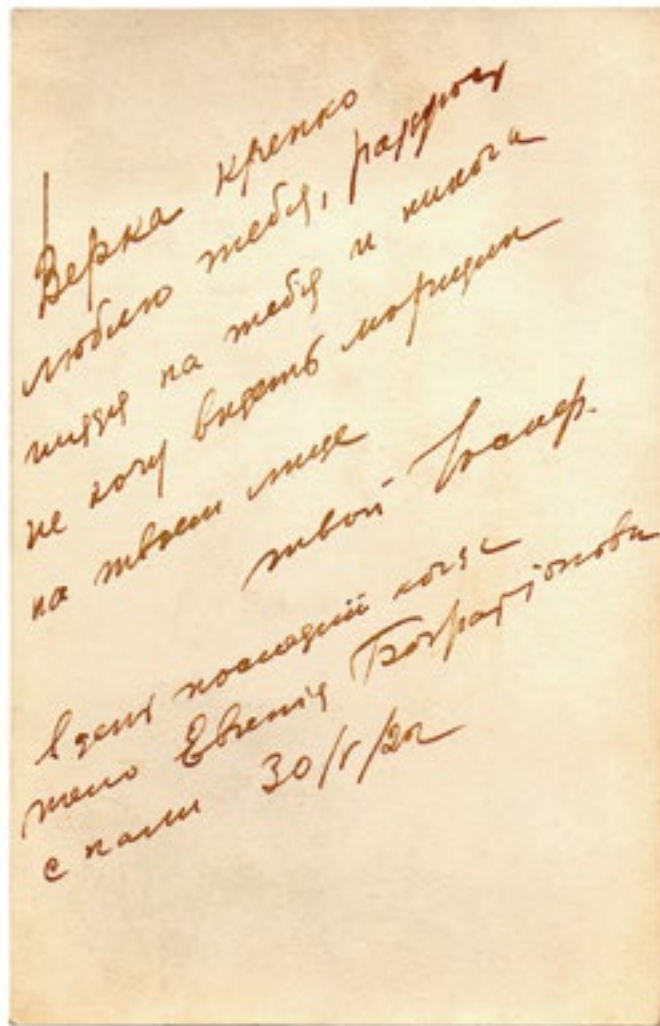 Верка крепко
люблю тебя,
глядя на тебя и никогда
не хочу видеть морщин
на твоем лице
твой
в день последний когда
тело Евгения Багратіоновича
с нами 30/V/22